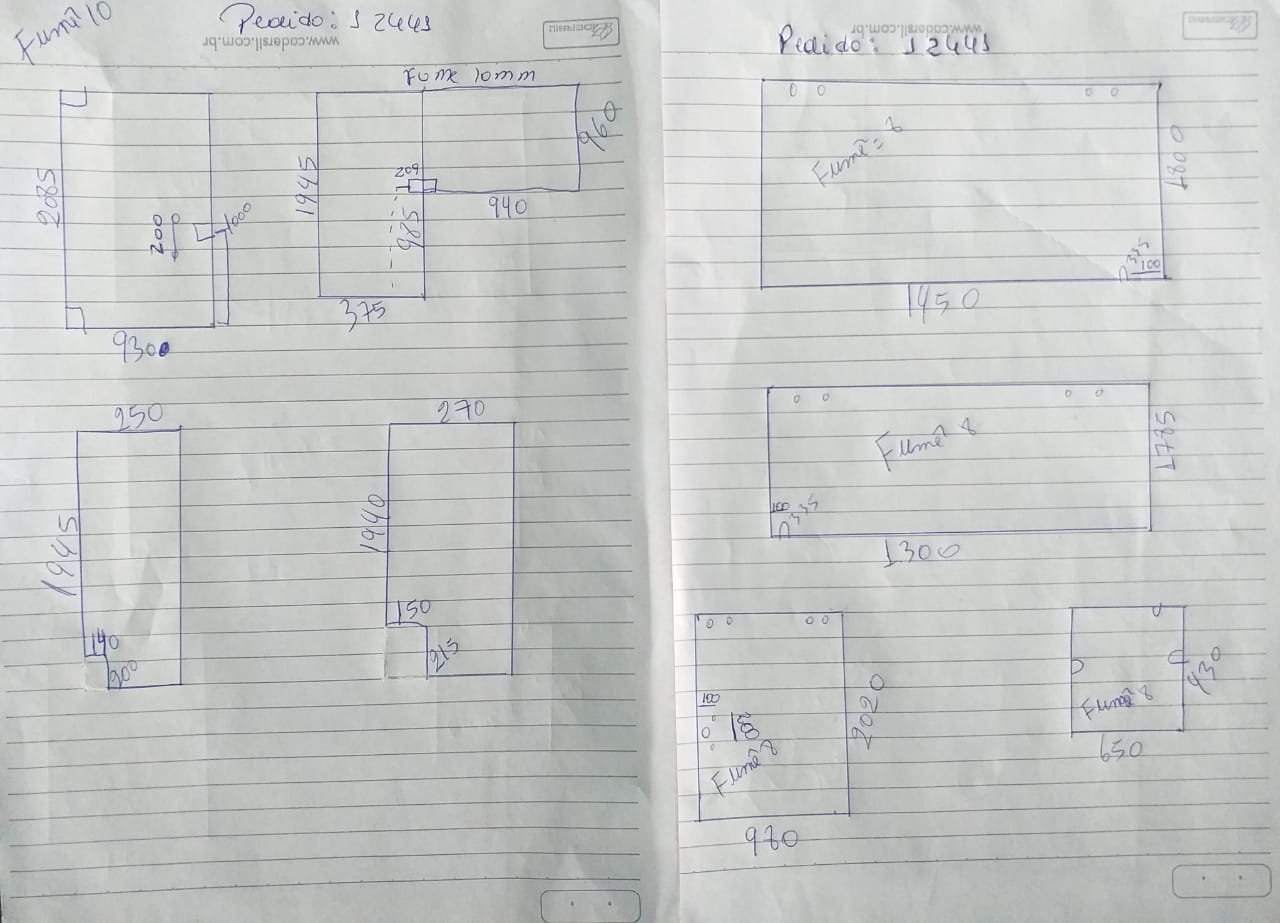 Fumê 10
Pedido: 12441
www.cadersil.com.br
fume 10mm
2085
200
1000
9300
1945
209
985
375
960
940
250
1945
140
900
270
1940
150
215
www.cadersil.com.br
Pedido: 12441
Fumê = 8
1800
335
100
1450
Fumê 8
1785
100
335
1300
100
2020
Fumê 8
980
430
Fumê 8
650